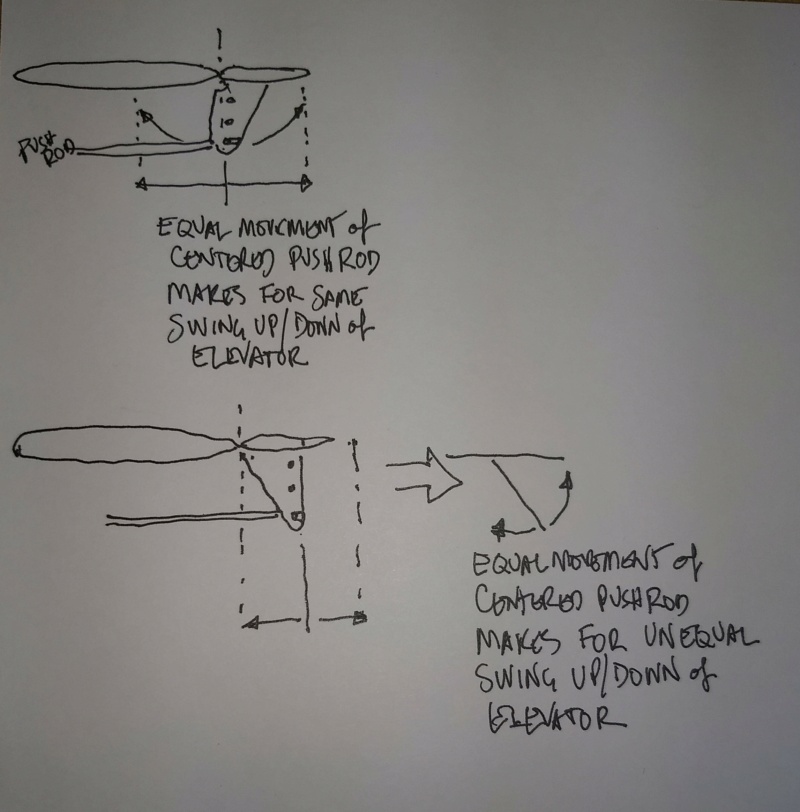 PUSH
ROD
EQUAL MOVEMENT of
CENTERED PUSHROD
MAKES FOR SAME
SWING UP/DOWN of
ELEVATOR
EQUAL MOVEMENT of
CENTERED PUSHROD
MAKES FOR UNEQUAL
SWING UP/DOWN of
ELEVATOR